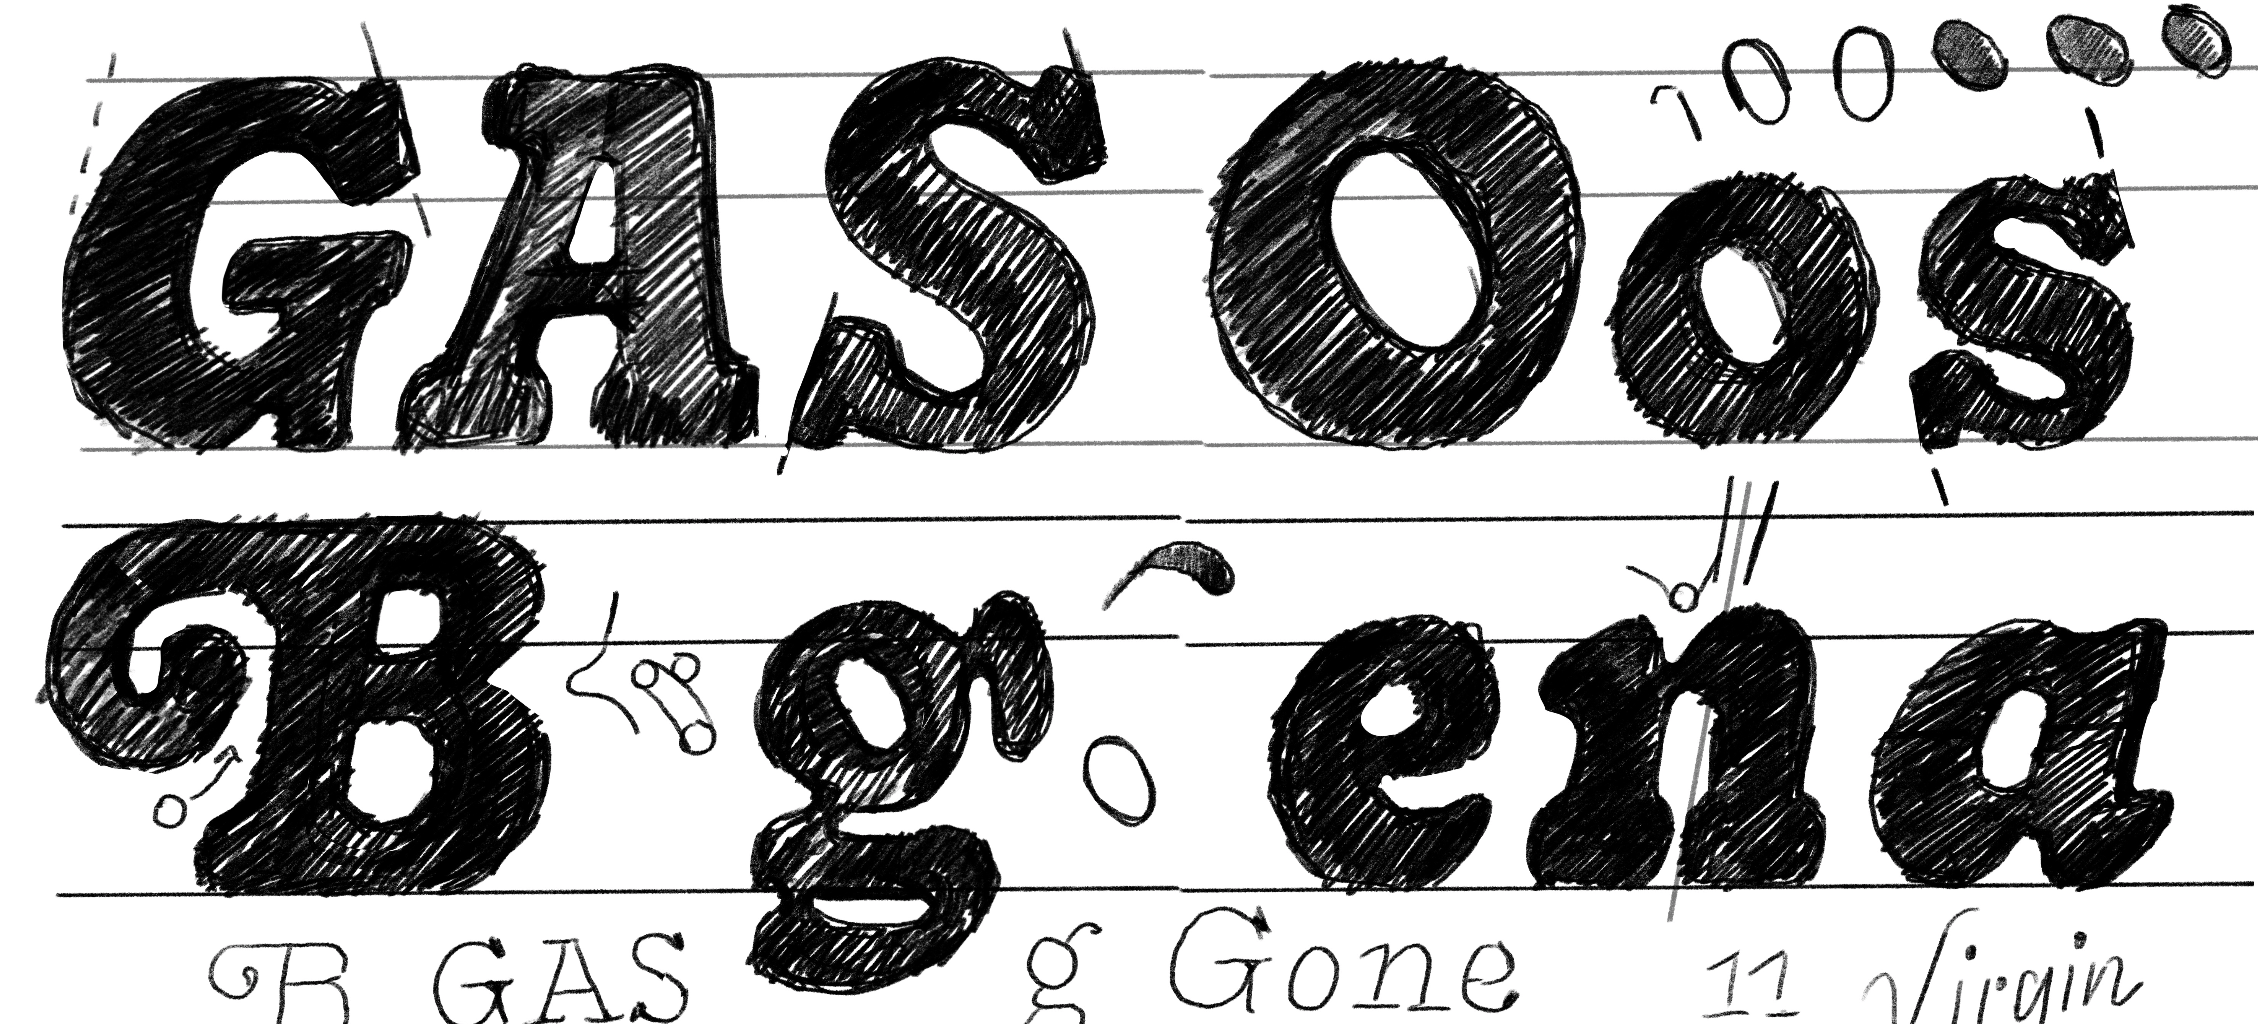 GAS Oos
B g ena
B GAS g Gone 11 Virgin